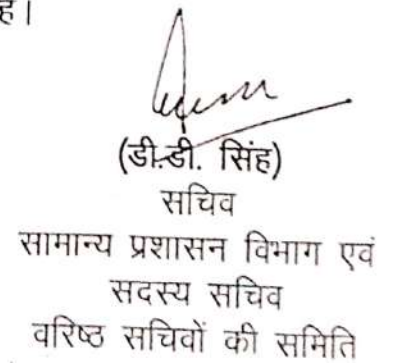 है।
(डी.डी. सिंह)
सचिव
सामान्य प्रशासन विभाग एवं
सदस्य सचिव
वरिष्ठ सचिवों की समिति